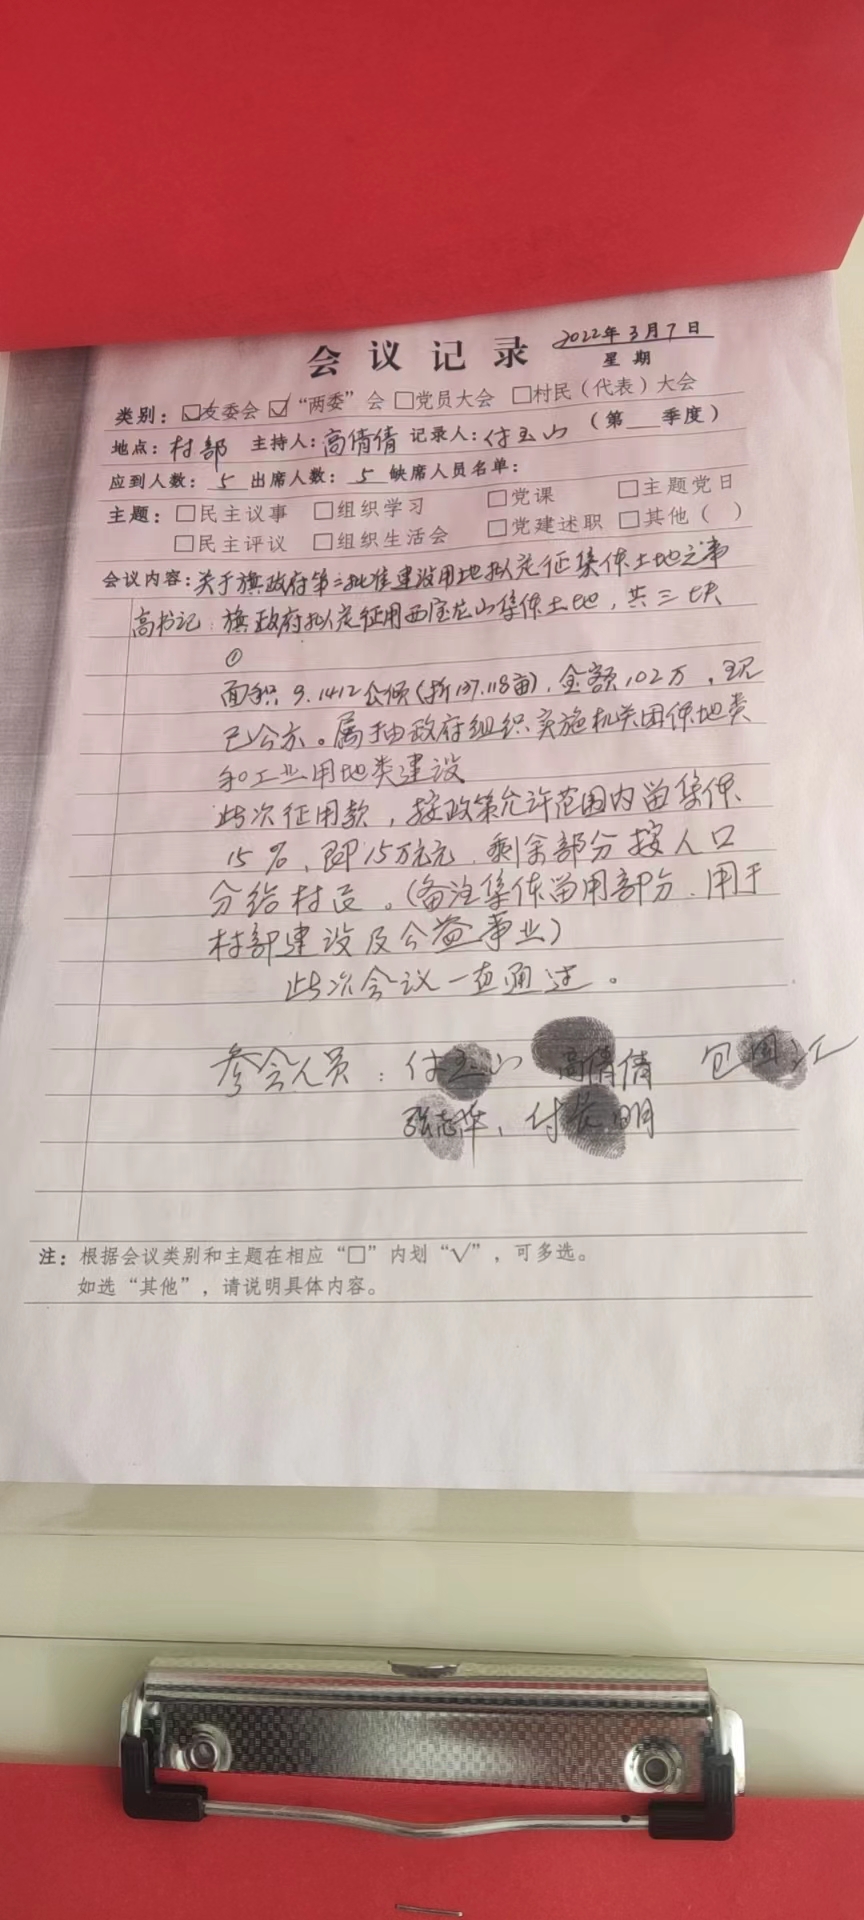 会议记录 2022年3月7日
星期
类别：☑支委会 ☑“两委”会 □党员大会 □村民（代表）大会
地点：村部 主持人：高倩倩 记录人：付玉山 （第 季度）
应到人数：5 出席人数：5 缺席人员名单：
主题：□民主议事 □组织学习 □党课 □主题党日
□民主评议 □组织生活会 □党建述职 □其他（ ）
会议内容：关于旗政府第二批准建设用地拟定征集体土地之事
高书记：旗政府拟定征用西宝龙山集体土地，共三块
①
面积 9.1412公倾（折137.118亩），金额102万，现
已公示。属由政府组织实施机关团体地类
和工业用地类建设
此次征用款，按政策允许范围内留集体
15%，即15万元，剩余部分按人口
分给村民。（备注集体留用部分，用于
村部建设及公益事业）
此次会议一直通过。
参会人员：付玉山 高倩倩 包国江
张志华、付长明
注：根据会议类别和主题在相应“□”内划“√”，可多选。
如选“其他”，请说明具体内容。